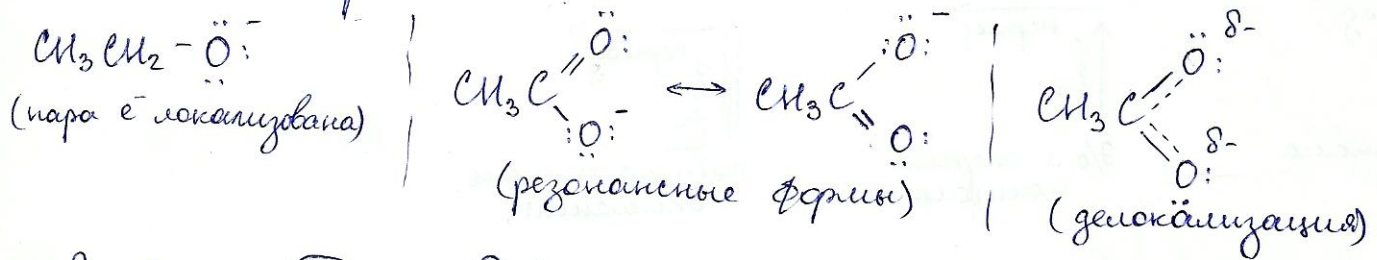 CH₃CH₂–Ö:⁻
(пара ē локализована)
CH₃C Ö: Ö:⁻ ↔ CH₃C Ö:⁻ Ö:
(резонансные формы)
CH₃C Ö: δ- Ö: δ-
(делокализация)